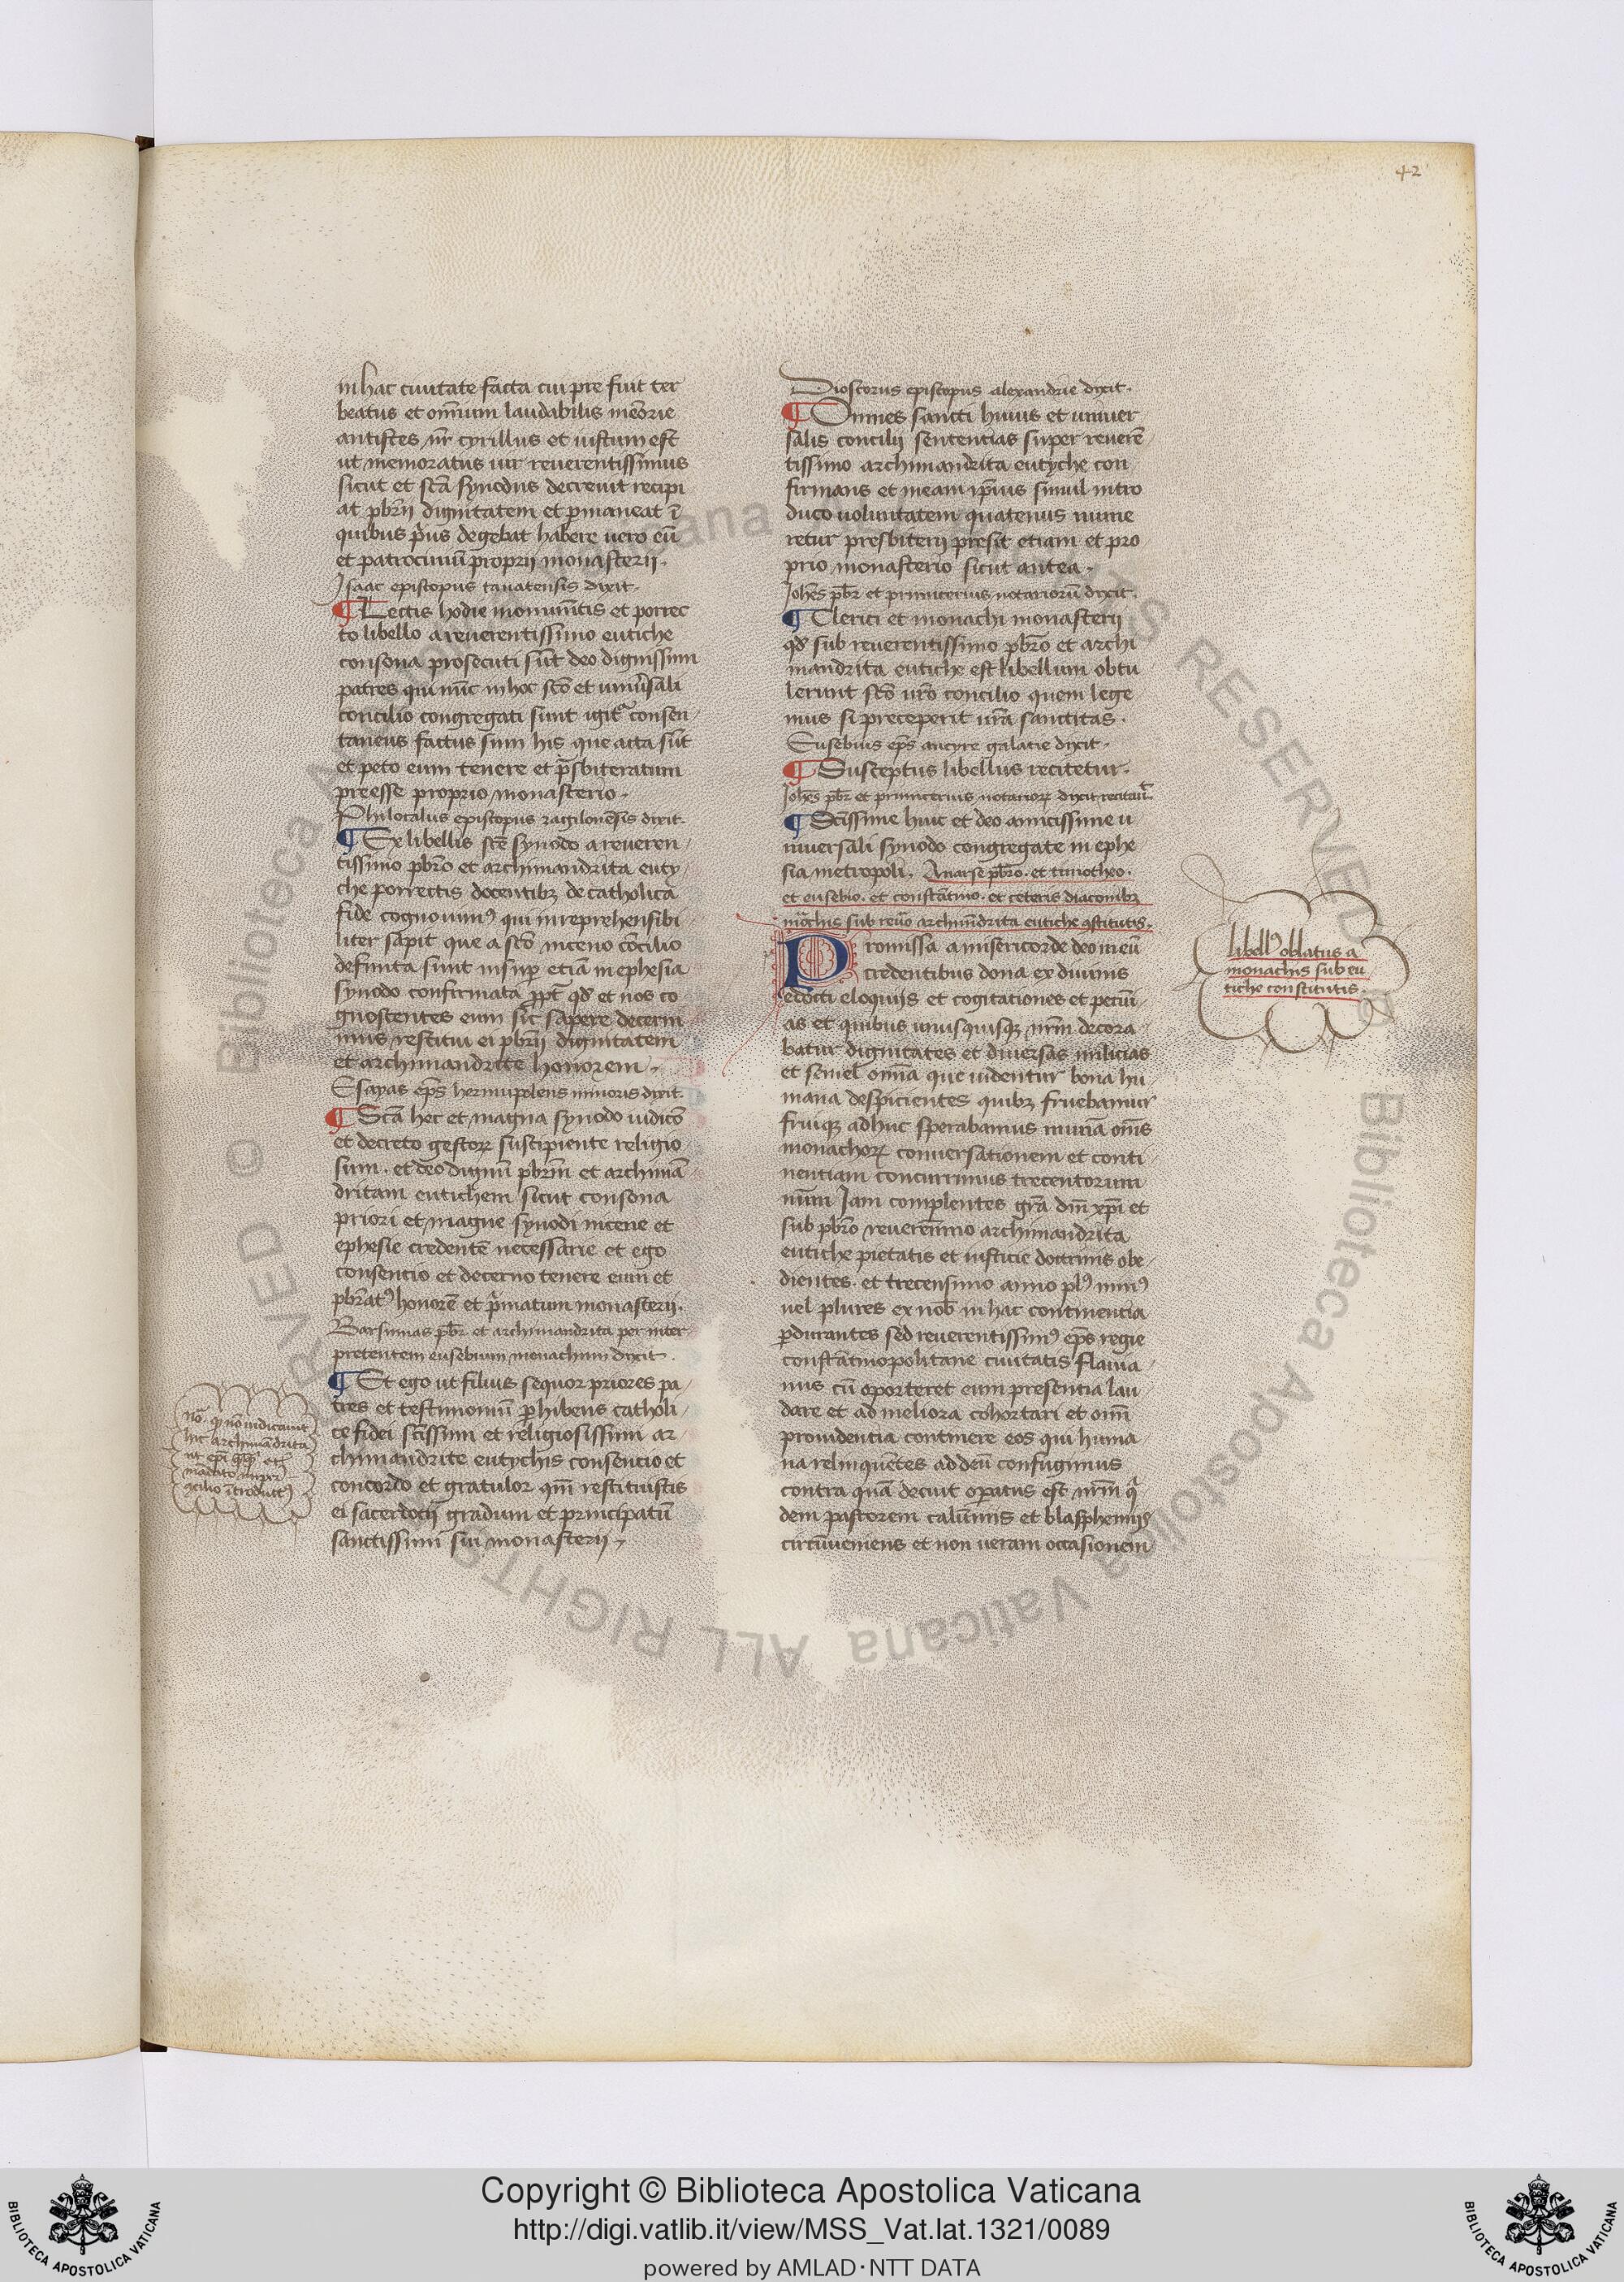 42
in hac ciuitate facta cui pre fuit ter
beatus et om̅ium laudabilis me̅orie
antistes nr̅ cyrillus et iustum est
ut memoratus uir reuerentissimus
sicut et sc̅a synodus decreuit recipi
at pbr̅ii dignitatem et p̲maneat i̅
quibus pͥus degebat habere uero eu̅
et patrociniu̅ proprii monasterii.
Isaac episcopus tauatensis dixit.
¶ Lectis hodie monime̅tis et porrec
to libello a reuerentissimo eutiche
consona prosecuti su̅t deo dignissimi
patres qui nu̅c in hoc sc̅o et uniu̅sali
concilio congregati sunt igit᷑ consen
taneus factus sum his que acta su̅t
et peto eum tenere et pͣsbiteratum
preesse proprio monasterio.
Philocalus episcopus zagilone̅sis dixit.
¶ Ex libellis sce̅ synodo a reueren
tissimo pbr̅o et archimandrita euty
che porrectis docentibꝫ de catholica
fide cognouimꝰ qui inreprehensibi
liter sapit que a sc̅o niceno co̅cilio
definita sunt insup̲ etia̅ in ephesia
synodo confirmata p̲pt̅ qd̅ et nos co
gnoscentes eum sic̅ sapere decerni
mus restitui ei pbr̅ii dignitatem
et archimandrite honorem.
Esayas ep̅s hermupolens minoris dixit.
¶ Sc̅a hec et magna synodo iudico̅
et decreto gestoꝝ suscipiente religio
sum. et deo dignu̅ pbrm̅ et archima̅
dritam eutichem sicut consona
priori et magne synodi nicene et
ephesie credente̅ necessarie et ego
consencio et decerno tenere eum et
pbr̅atꝰ honore̅ et pͥmatum monasterii.
Barsumas pbr̅ et archimandrita per inter
pretentem eusebium monachum dixit.
¶ Et ego ut filius sequor priores pa
tres et testimoniu̅ p̲hibens catholi
ce fidei sc̅issimi et religiosissimi ar
chimandrite eutychis consencio et
concordo et gratulor qm̅ restituistis
ei sacerdotii gradum et principatu̅
sanctissimi sui monasterii
no̅. qꝫ no̅ iudicauit
hic archima̅drita
Dioscorus episcopus alexandrie dixit.
¶ Omnes sancti huius et uniuer
salis concilij sentencias super reuere̅
tissimo archimandrita eutyche con
firmans et meam ip̅ius simul intro
duco uoluntatem quatenus nume
retur presbiterii presit etiam et pro
prio monasterio sicut antea.
Joh̅es pbr̅ et primicerius notarioru̅ dixit.
¶ Clerici et monachi monasterij
qd̅ sub reuerentissimo pbr̅o et archi
mandrita eutiche est libellum obtu
lerunt sc̅o ur̅o concilio quem lege
mus si preceperit ur̅a sanctitas.
Eusebius ep̅s ancyre galacie dixit.
¶ Susceptus libellus recitetur.
Joh̅es pbr̅ et primicerius notarioꝝ dixit recitau̅.
¶ Sc̅issime huic et deo amicissime u
niuersali synodo congregate in ephe
sia metropoli. A narse pbr̅o. et timotheo.
et eusebio. et consta̅tino. et ceteris diaconibꝫ
mo̅achis sub reu̅o archim̅drita eutiche ꝯstitutis.
Promissa a misericorde deo in eu̅
credentibus dona ex diuinis
edocti eloquijs et cogitationes et pecu̅i
as et quibus unusquisqꝫ nrm̅ decora
batur dignitates et diuersas milicias
et semel om̅ia que uidentur bona hu
mana despicientes quibꝫ fruebamur
fruiqꝫ adhuc sperabamus
monachoꝝ conuersationem et conti
nentiam concurrimus trecentorum
num̅ Jam complentes gr̅a dn̅i xp̅i et
sub pbr̅o reueren̅mo archimandrita
eutiche pietatis et iusticie doctrinis obe
dientes. et trecensimo anno plꝰ minꝰ
uel plures ex nob̅ in hac continencia
p̲durantes sed reuerentissimꝰ ep̅s regie
consta̅tinopolitane ciuitatis flauia
nus cu̅ oporteret eum presentia lau
dare et ad meliora cohortari et om̅i
prouidentia continere eos qui huma
na relinquentes ad deu̅ confugimus
contra qua̅ decuit op̲atus est nrm̅ qͥ
dem pastorem calu̅niis et blasphemijs
circu̅ueniens et non ueram occasionem
libellꝰ oblatus a
monachis sub eu
tiche constitutis.
Copyright © Biblioteca Apostolica Vaticana
http://digi.vatlib.it/view/MSS_Vat.lat.1321/0089
powered by AMLAD·NTT DATA
BIBLIOTECA APOSTOLICA VATICANA
BIBLIOTECA APOSTOLICA VATICANA